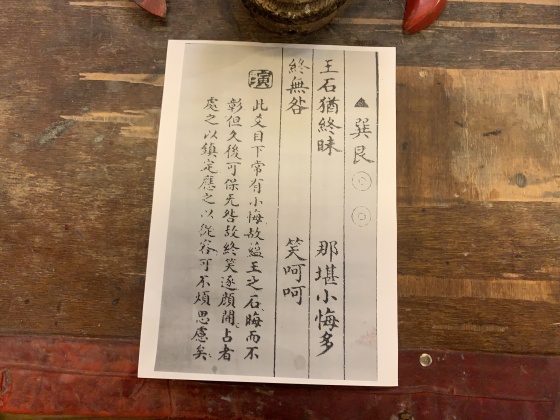 巽艮
王石猶終昧 那堪小悔多
終無咎 笑呵呵
演
此爻目下常有小悔故蘊王之石晦而不
彰但久後可保无咎故終笑逐顏開占者
處之以鎮定應之以從容可不煩思慮矣